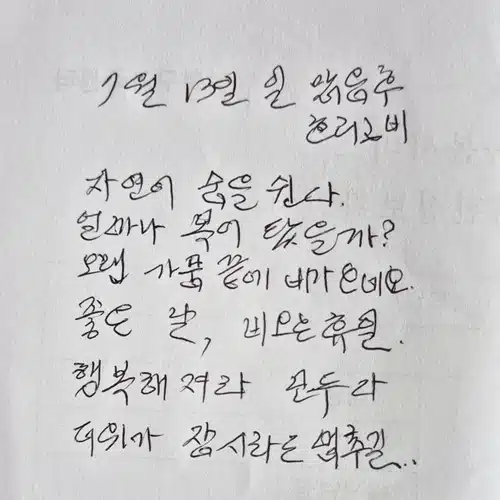 7월 13일 일 맑음후
흐리고비
자연이 숨을 쉰다.
얼마나 목이 탔을까?
오랜 가뭄 끝에 비가 오네요.
좋은 날, 비오는 휴일.
행복해져라 모두 다
더위가 잠시라도 멈추길..